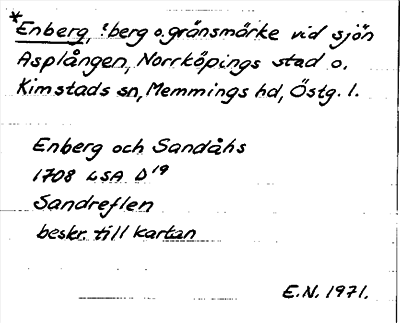 *Enberg, :berg o. gränsmärke vid sjön
Asplången, Norrköpings stad o.
Kimstads sn, Memmings hd, Östg. l.
Enberg och Sandåhs
1708 LSA D 19
Sandreflen
beskr. till kartan
E.N. 1971.